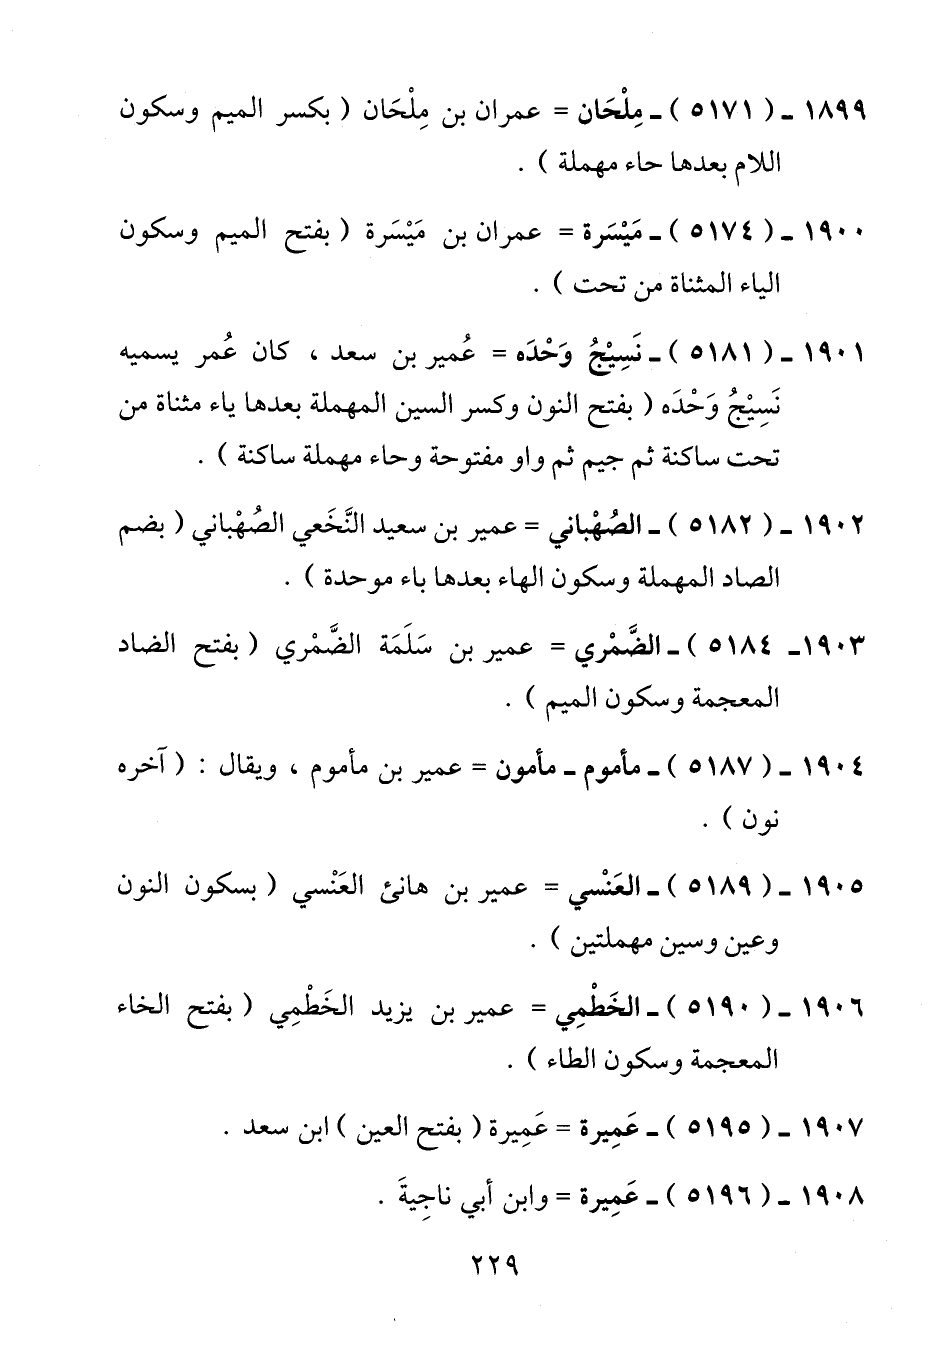 ١٨٩٩ ـ ( ٥١٧١ ) ـ مِلْحَان = عمران بن مِلْحَان ( بكسر الميم وسكون
اللام بعدها حاء مهملة ) .
١٩٠٠ ـ ( ٥١٧٤ ) ـ مَيْسَرة = عمران بن مَيْسَرة ( بفتح الميم وسكون
الياء المثناة من تحت ) .
١٩٠١ ـ ( ٥١٨١ ) ـ نَسِيْجُ وَحْدَه = عُمير بن سعد ، كان عُمر يسميه
نَسِيْجُ وَحْدَه ( بفتح النون وكسر السين المهملة بعدها ياء مثناة من
تحت ساكنة ثم جيم ثم واو مفتوحة وحاء مهملة ساكنة ) .
١٩٠٢ ـ ( ٥١٨٢ ) ـ الصُهْباني = عمير بن سعيد النَّخَعي الصُهْباني ( بضم
الصاد المهملة وسكون الهاء بعدها باء موحدة ) .
١٩٠٣ـ ٥١٨٤ ) ـ الضَّمْري = عمير بن سَلَمَة الضَّمْري ( بفتح الضاد
المعجمة وسكون الميم ) .
١٩٠٤ ـ ( ٥١٨٧ ) ـ مأموم ـ مأمون = عمير بن مأموم ، ويقال : ( آخره
نون ) .
١٩٠٥ ـ ( ٥١٨٩ ) ـ العَنْسي = عمير بن هانئ العَنْسي ( بسكون النون
وعين وسين مهملتين ) .
١٩٠٦ ـ ( ٥١٩٠ ) ـ الخَطْمِي = عمير بن يزيد الخَطْمِي ( بفتح الخاء
المعجمة وسكون الطاء ) .
١٩٠٧ ـ ( ٥١٩٥ ) ـ عَمِيرة = عَمِيرة ( بفتح العين ) ابن سعد .
١٩٠٨ ـ ( ٥١٩٦ ) ـ عَمِيرة = وابن أبي ناجِيةَ .
٢٢٩